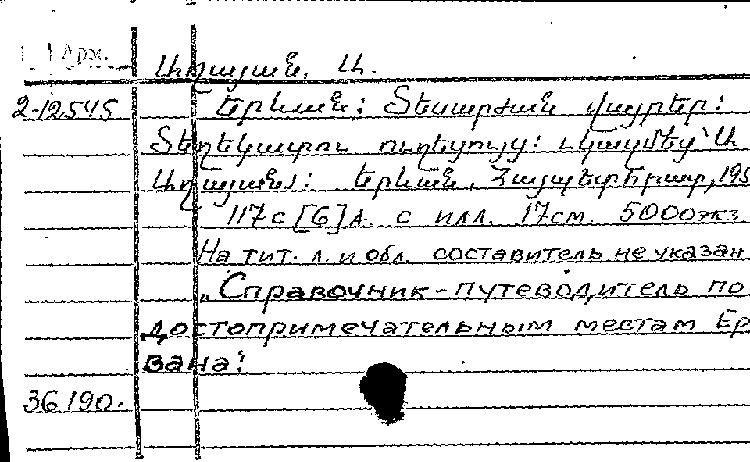 Арм.
Աղայան, Ա.
2-12545 Երևան: Տեսարժան վայրեր:
Տեղեկատու ուղեցույց: Կազմեց՝ Ա
Աղայանը: Երևան, Հայպետհրատ, 195
117с [6]л. с илл. 17см. 5000экз.
На тит. л. и обл. составитель не указан
„Справочник-путеводитель по
достопримечательным местам Ер
вана“:
36190.